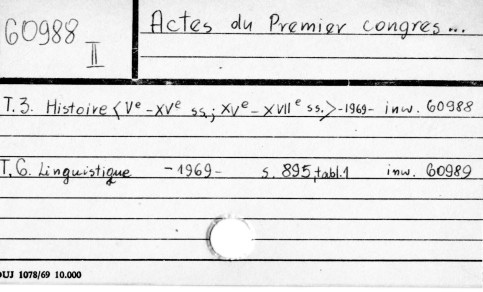 60988
II
Actes du Premier congres...
T. 3. Histoire <Ve-XVe ss.; XVe-XVIIe ss.> -1969- inw. 60988
T. 6. Linguistique -1969- s. 895, tabl. 1 inw. 60989
UJ 1078/69 10.000